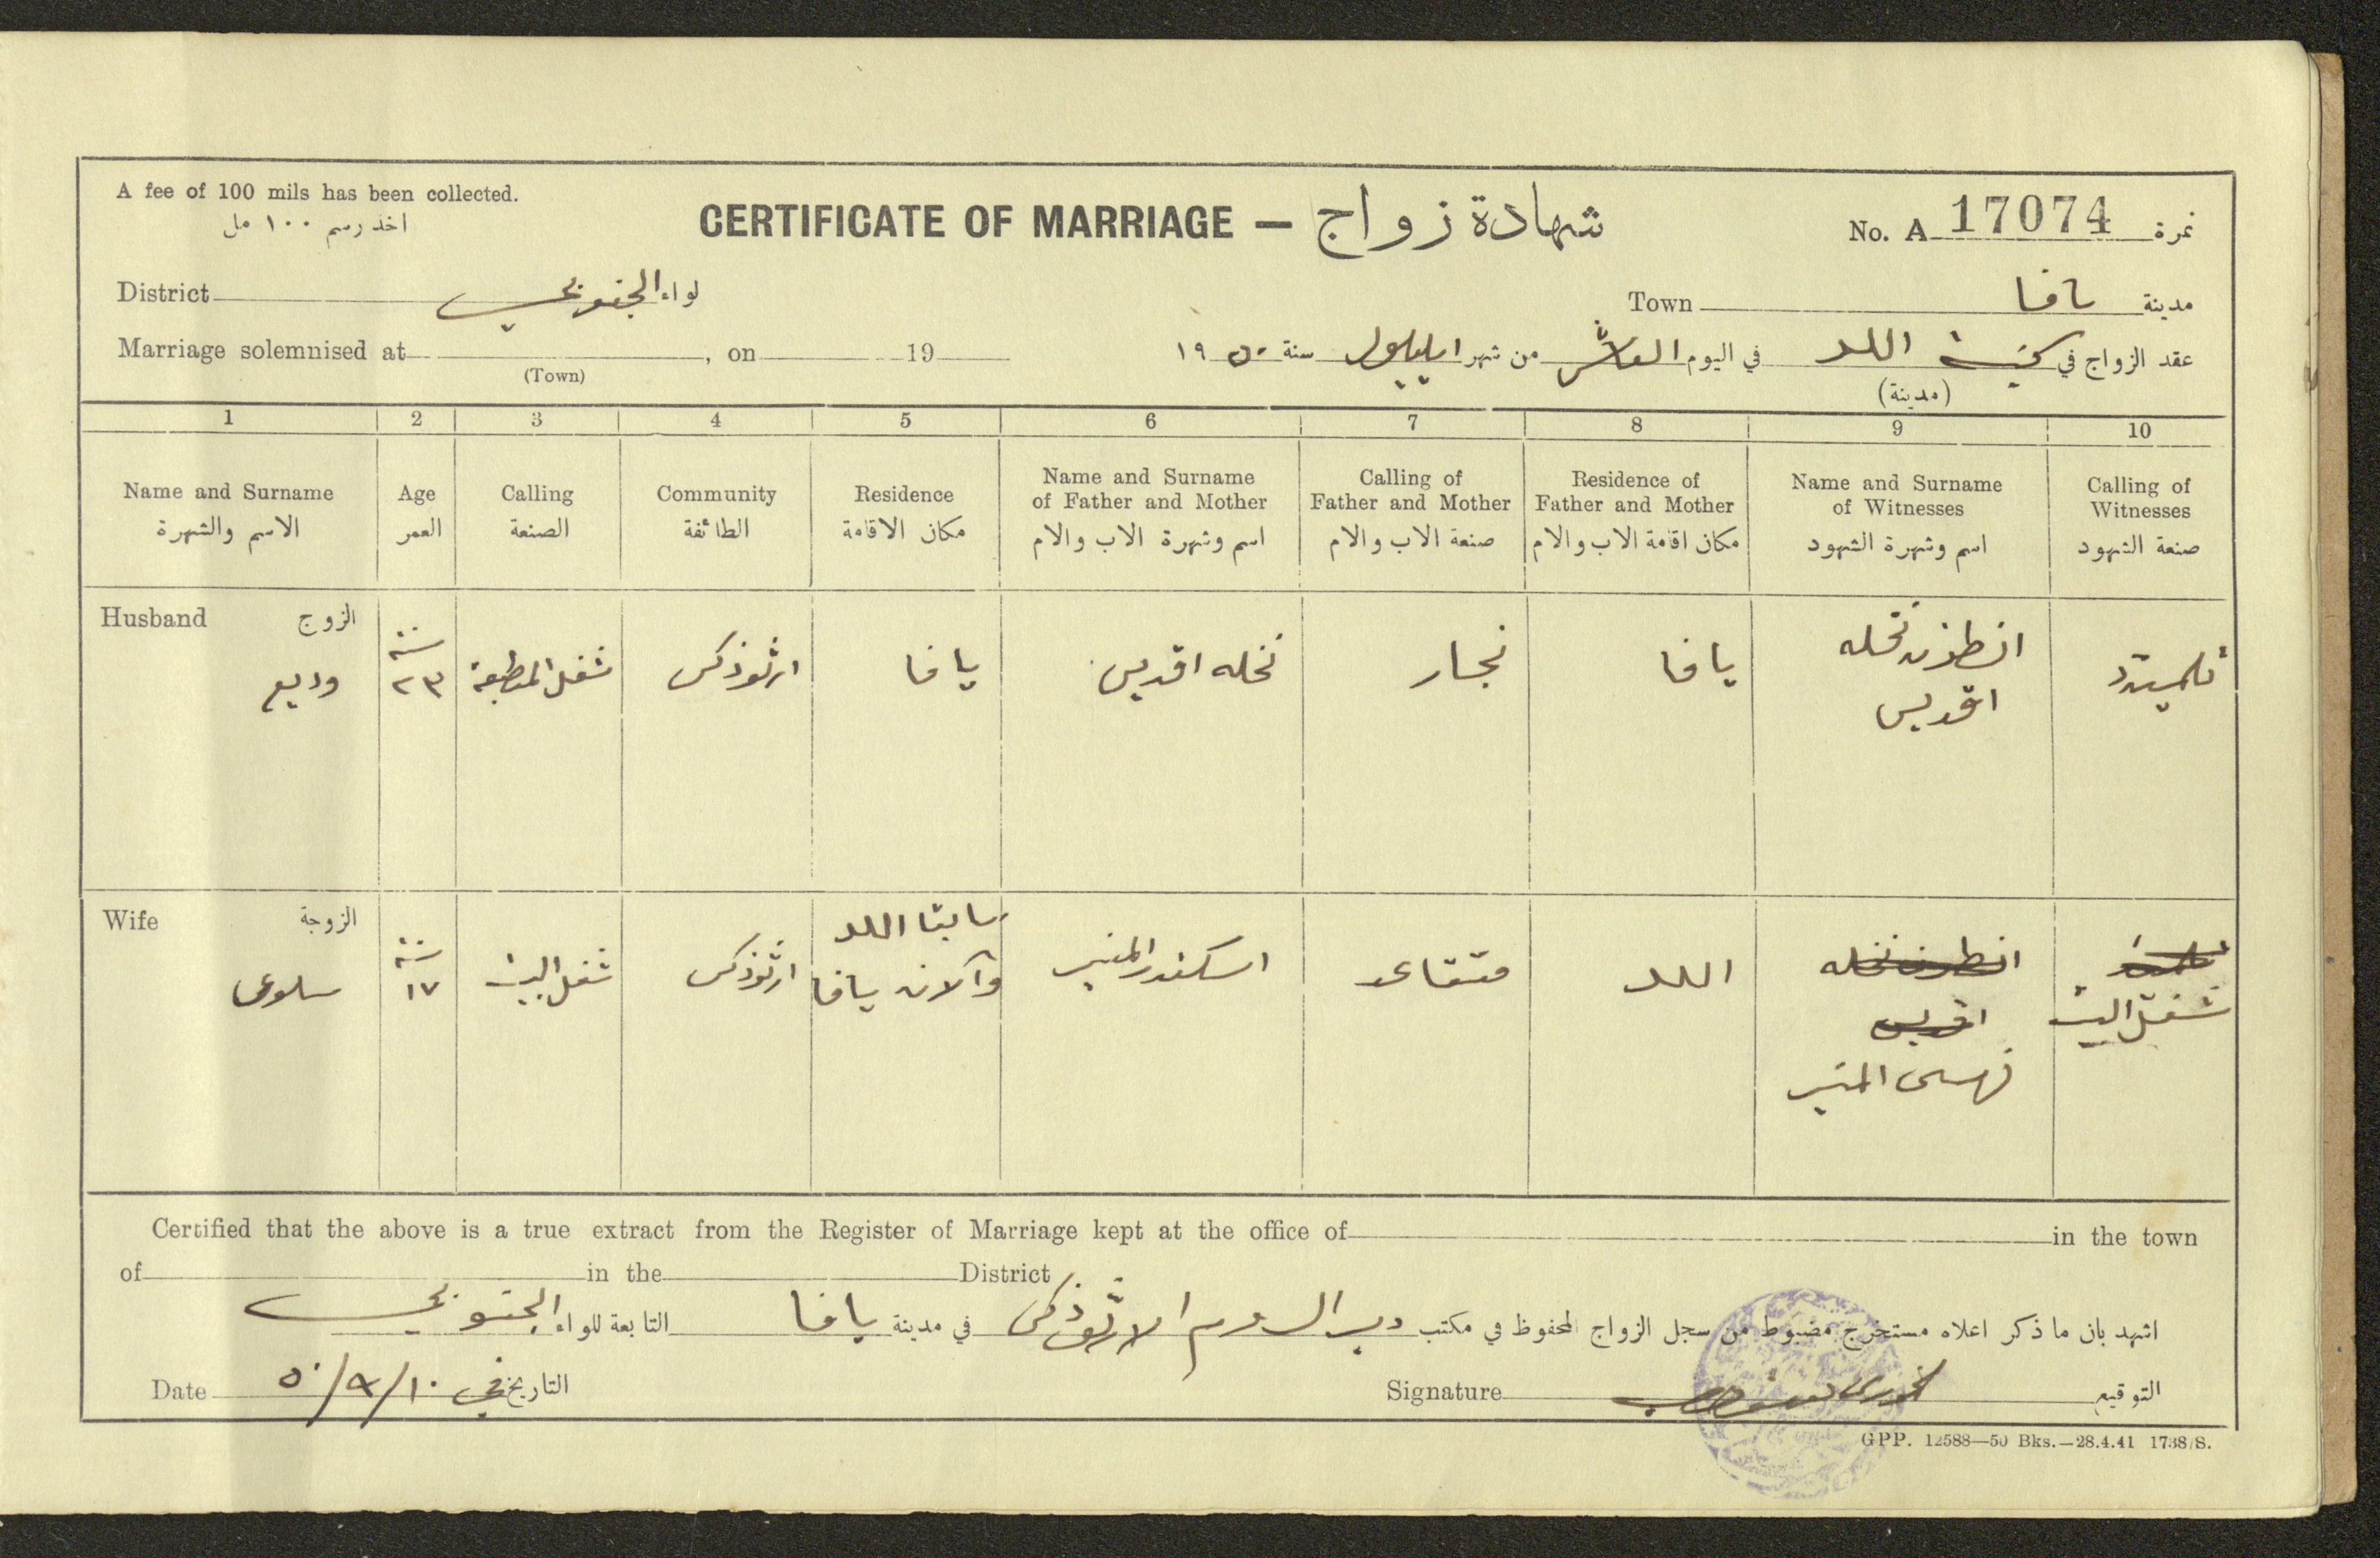 A fee of 100 mils has been collected.
اخذ رسم ١٠٠ مل
CERTIFICATE OF MARRIAGE — شهادة زواج
No. A 17074 نمرة
District لواء الجنوبي
Town مدينة يافا
Marriage solemnised at , on 19
(Town)
عقد الزواج في كنيسة اللد في اليوم العاشر من شهر ايلول سنة ١٩٥٠
(مدينة)
1 2 3 4 5 6 7 8 9 10
Name and Surname
الاسم والشهرة
Age
العمر
Calling
الصنعة
Community
الطائفة
Residence
مكان الاقامة
Name and Surname
of Father and Mother
اسم وشهرة الاب والام
Calling of
Father and Mother
صنعة الاب والام
Residence of
Father and Mother
مكان اقامة الاب والام
Name and Surname
of Witnesses
اسم وشهرة الشهود
Calling of
Witnesses
صنعة الشهود
Husband الزوج
وديع
سنة
٢٣
شغل المطبعة
ارثوذكس
يافا
نخله اقديس
نجار
يافا
انطون نخله
اقديس
Wife الزوجة
سلوى
سنة
١٧
شغل البيت
ارثوذكس
سابقا اللد
وآلان يافا
اسكندر المنير
متقاعد
اللد
انطون نخله
اقديس
المنير
شغل البيت
Certified that the above is a true extract from the Register of Marriage kept at the office of in the town
of in the District
اشهد بان ما ذكر اعلاه مستخرج مضبوط من سجل الزواج المحفوظ في مكتب دير الروم الارثوذكس في مدينة يافا التابعة للواء الجنوبي
Date ٥٠/٩/١٠ التاريخ في
Signature التوقيع
GPP. 12588—50 Bks.—28.4.41 1738/S.